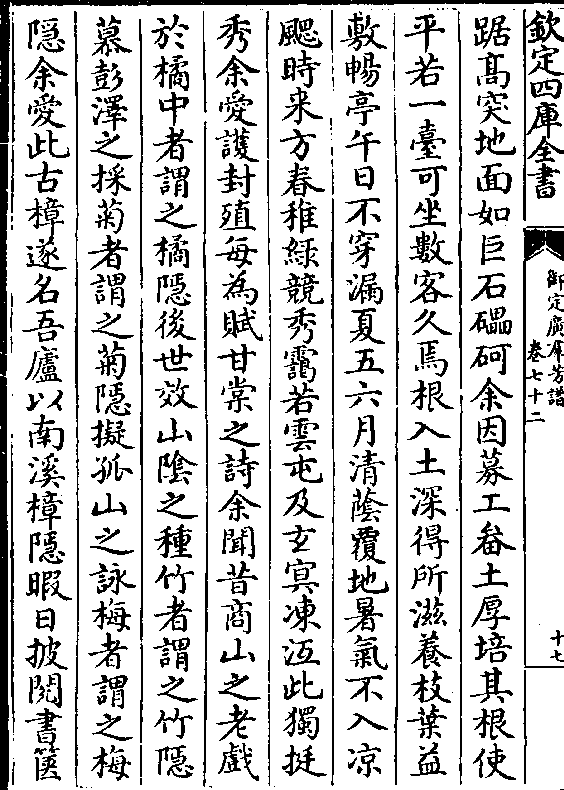 欽定四庫全書
御定廣羣芳譜
卷七十二
十七
踞髙突地面如巨石礧砢余因募工畚土厚培其根使
平若一臺可坐數客久焉根入土深得所滋養枝葉益
敷暢亭午日不穿漏夏五六月清蔭覆地暑氣不入凉
颸時来方春稚緑競秀靄若雲屯及玄冥凍沍此獨挺
秀余愛護封殖每為賦甘棠之詩余聞昔商山之老戲
於橘中者謂之橘隠後世效山陰之種竹者謂之竹隠
慕彭澤之採菊者謂之菊隠擬孤山之詠梅者謂之梅
隠余愛此古樟遂名吾廬以南溪樟隠暇日披閲書篋